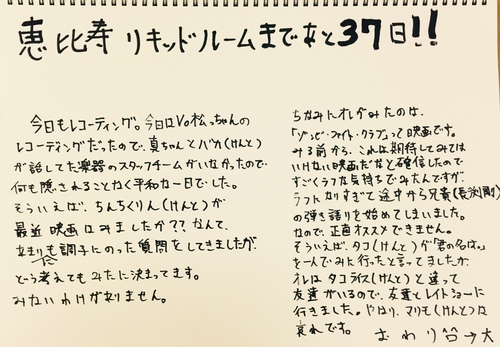 恵比寿 リキッドルームまであと37日!!
今日もレコーディング。今日はVo松っちゃんの
レコーディングだったので、真ちゃんとバカ(けんと)
が話してた楽器のスタッフチームがいなかったので
何も隠されることなく平和な一日でした。
そういえば、ちんちくりん(けんと)が
最近映画はみましたか??なんて、
調子にのった質問をしてきましたが、
どう考えてもみたに決まってます。
みないわけが有りません。
ちなみにオレがみたのは、
「ゾンビ・ファイト・クラブ」って映画です。
みる前から、これは期待してみては
いけない映画だなと確信したので
すごくラフな気持ちでみたんですが、
ラフになりすぎて途中から兄貴(長渕剛)
の弾き語りを始めてしまいました。
なので、正直オススメできません。
そういえば、タコ(けんと)が「君の名は。」
を一人でみに行ったと言ってましたが、
オレはタコライス(けんと)と違って
友達がいるので、友達とレイトショーに
行きました。やはり、マリモ(けんと)は
哀れです。
おわり →大